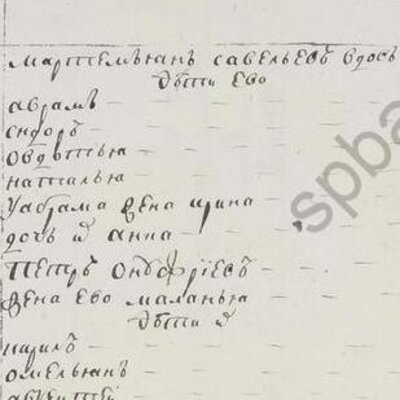 мартемьянъ савельевъ вдовъ
дѣти ево
аврамъ
сидоръ
овдотья
наталья
у аврама жена ирина
дочь ѿ анна
петръ онуфріевъ
жена ево маланья
дѣти ѿ
кирилъ
омельянъ
spba